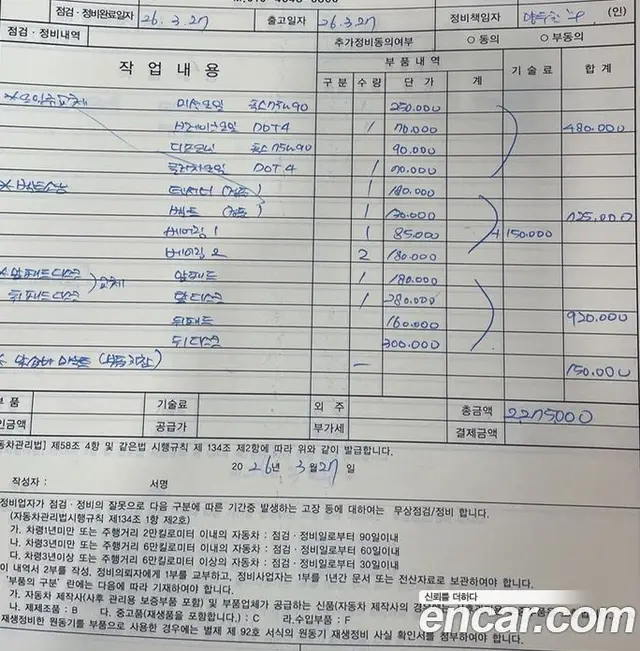 점검·정비완료일자 26.3.27 출고일자 26.3.27 정비책임자 (인)
점검·정비내역 추가정비동의여부 ○ 동의 ○ 부동의
작업내용 부품내역 기술료 합계
구분 수량 단가 계
미션오일 75W90 250.000
브레이크오일 DOT4 1 70.000 480.000
디프오일 75W90 90.000
DOT4 1 70.000
텐셔너 1 180.000
벨트 1 130.000 725.000
베어링 1 1 85.000 + 150.000
베어링 2 2 180.000
앞패드디스크 교체 앞패드 1 180.000
뒤패드디스크 앞디스크 1 280.000
뒤패드 160.000 920.000
뒤디스크 300.000
150.000
부품 기술료 외주 총금액 2,275,000
공급가 부가세 결제금액
자동차관리법] 제58조 4항 및 같은법 시행규칙 제 134조 제2항에 따라 위와 같이 발급합니다.
2026년 3월 27일
작성자 : 서명
정비업자가 점검·정비의 잘못으로 다음 구분에 따른 기간중 발생하는 고장 등에 대하여는 무상점검/정비 합니다.
(자동차관리법시행규칙 제134조 1항 제2호)
가. 차령1년미만 또는 주행거리 2만킬로미터 이내의 자동차 : 점검·정비일로부터 90일이내
나. 차령3년미만 또는 주행거리 6만킬로미터 이내의 자동차 : 점검·정비일로부터 60일이내
다. 차령3년이상 또는 주행거리 6만킬로미터 이상의 자동차 : 점검·정비일로부터 30일이내
이 내역서 2부를 작성, 정비의뢰자에게 1부를 교부하고, 정비사업자는 1부를 1년간 문서 또는 전산자료로 보관하여야 합니다.
'부품의 구분' 란에는 다음에 따라 기재하여야 합니다.
가. 자동차 제작사(사후 관리용 보증부품 포함) 및 부품업체가 공급하는 신품(자동차 제작사의
나. 제제조품 : B 다. 중고품(재생품을 포함합니다.) : C 라.수입부품 : F
재생정비한 원동기를 부품으로 사용한 경우에는 별제 제 92호 서식의 원동기 재생정비 사실 확인서를 첨부하여야 합니다.
신뢰를 더하다
encar.com